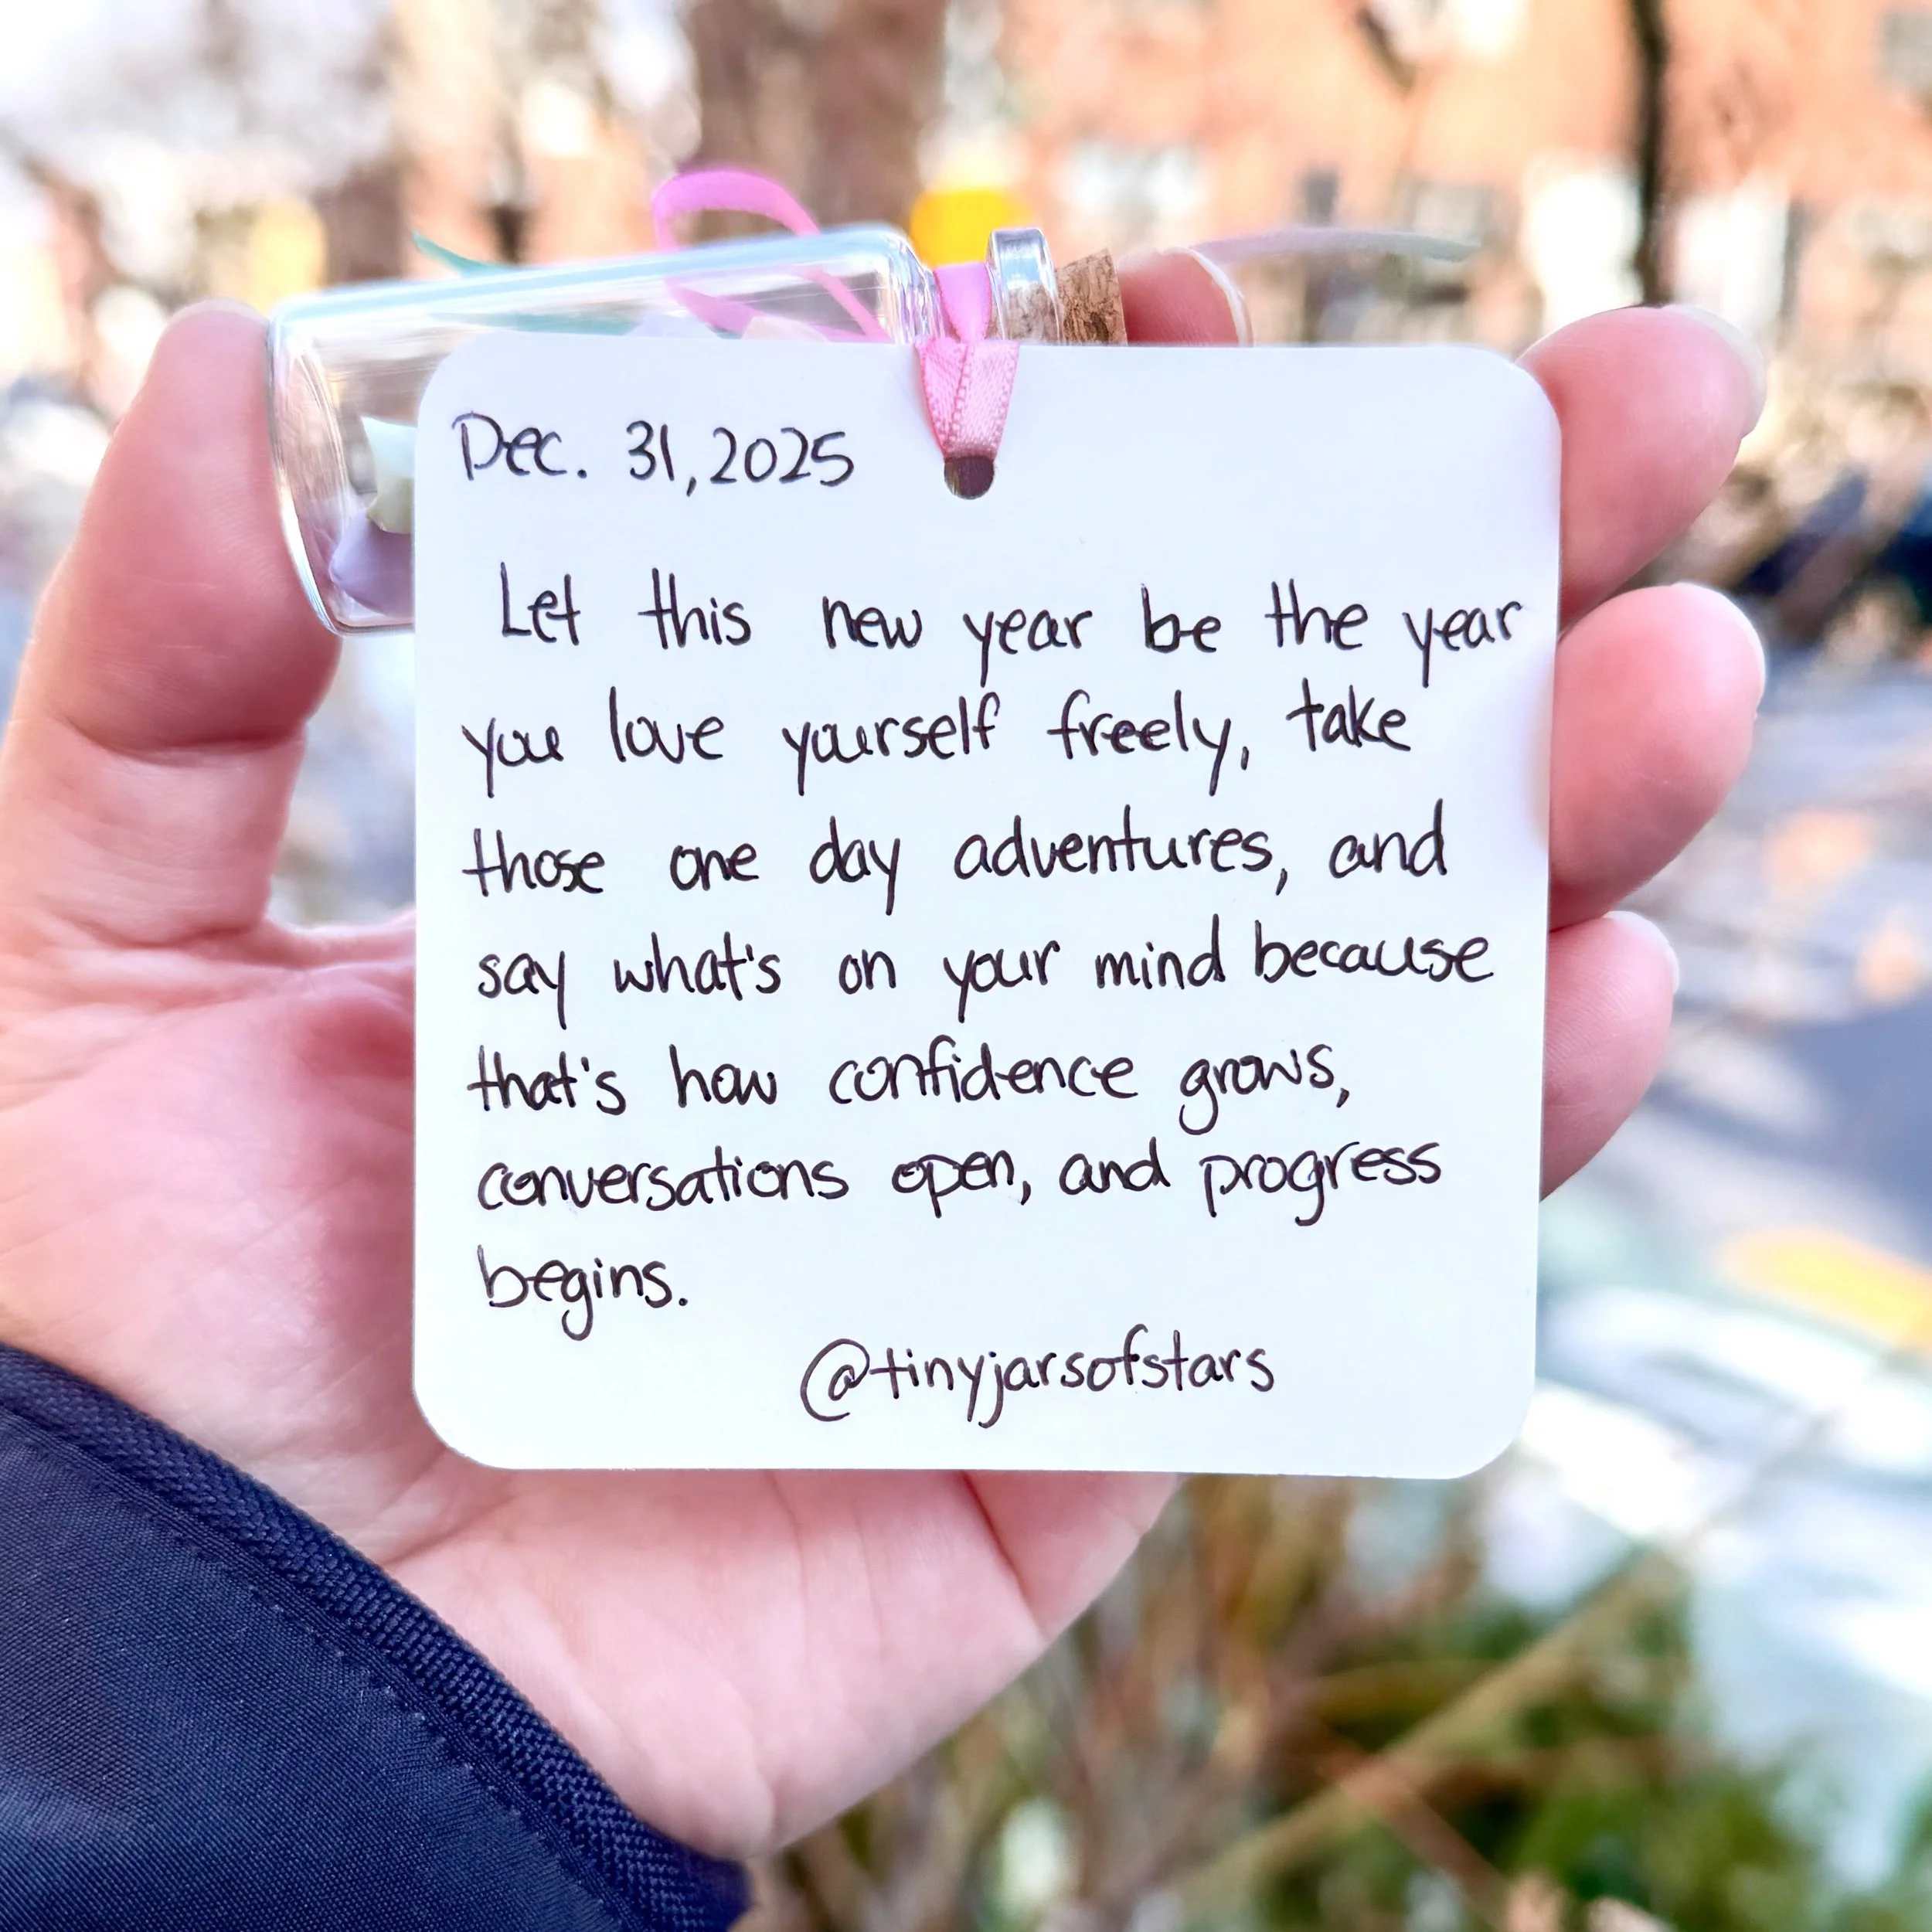 Dec. 31, 2025
Let this new year be the year
you love yourself freely, take
those one day adventures, and
say what's on your mind because
that's how confidence grows,
conversations open, and progress
begins.
@tinyjarsofstars